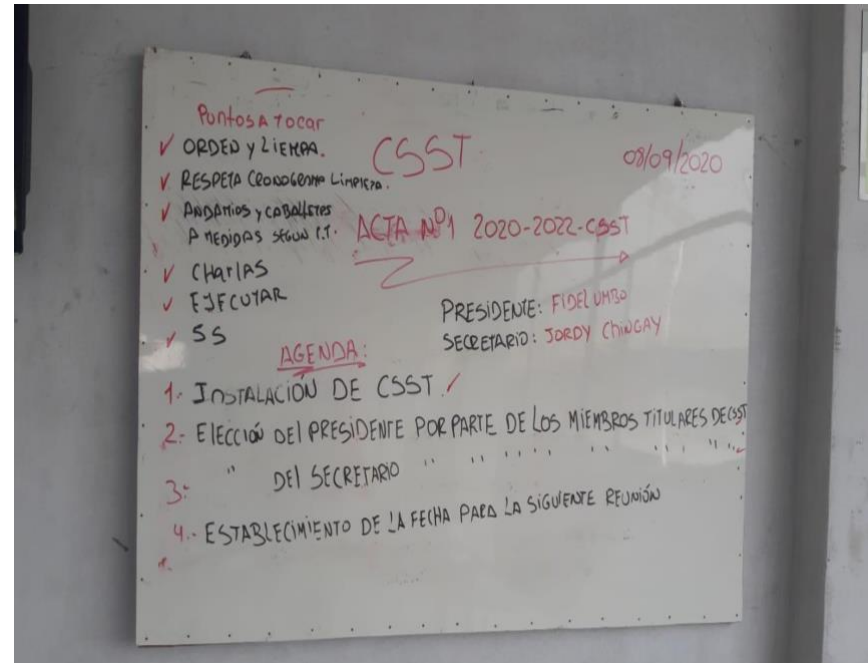 Puntos A Tocar
CSST
08/09/2020
✓ ORDEN y LiEMPA.
✓ RESPETA CRONOGRAMA LIMPIEZA.
✓ ANDAMIOS y CABALLETES
A MEDIDAS SEGUN P.T.
ACTA Nº1 2020-2022-CSST
✓ CHARLAS
✓ EJECUTAR
✓ 5S
PRESIDENTE: FIDEL UMBO
SECRETARIO: JORDY CHINGAY
AGENDA:
1.- INSTALACIÓN DE CSST ✓
2.- ELECCIÓN DEL PRESIDENTE POR PARTE DE LOS MIEMBROS TITULARES DE CSST
3.- " DEL SECRETARIO " " " " " " " "
4.- ESTABLECIMIENTO DE LA FECHA PARA LA SIGUIENTE REUNIÓN